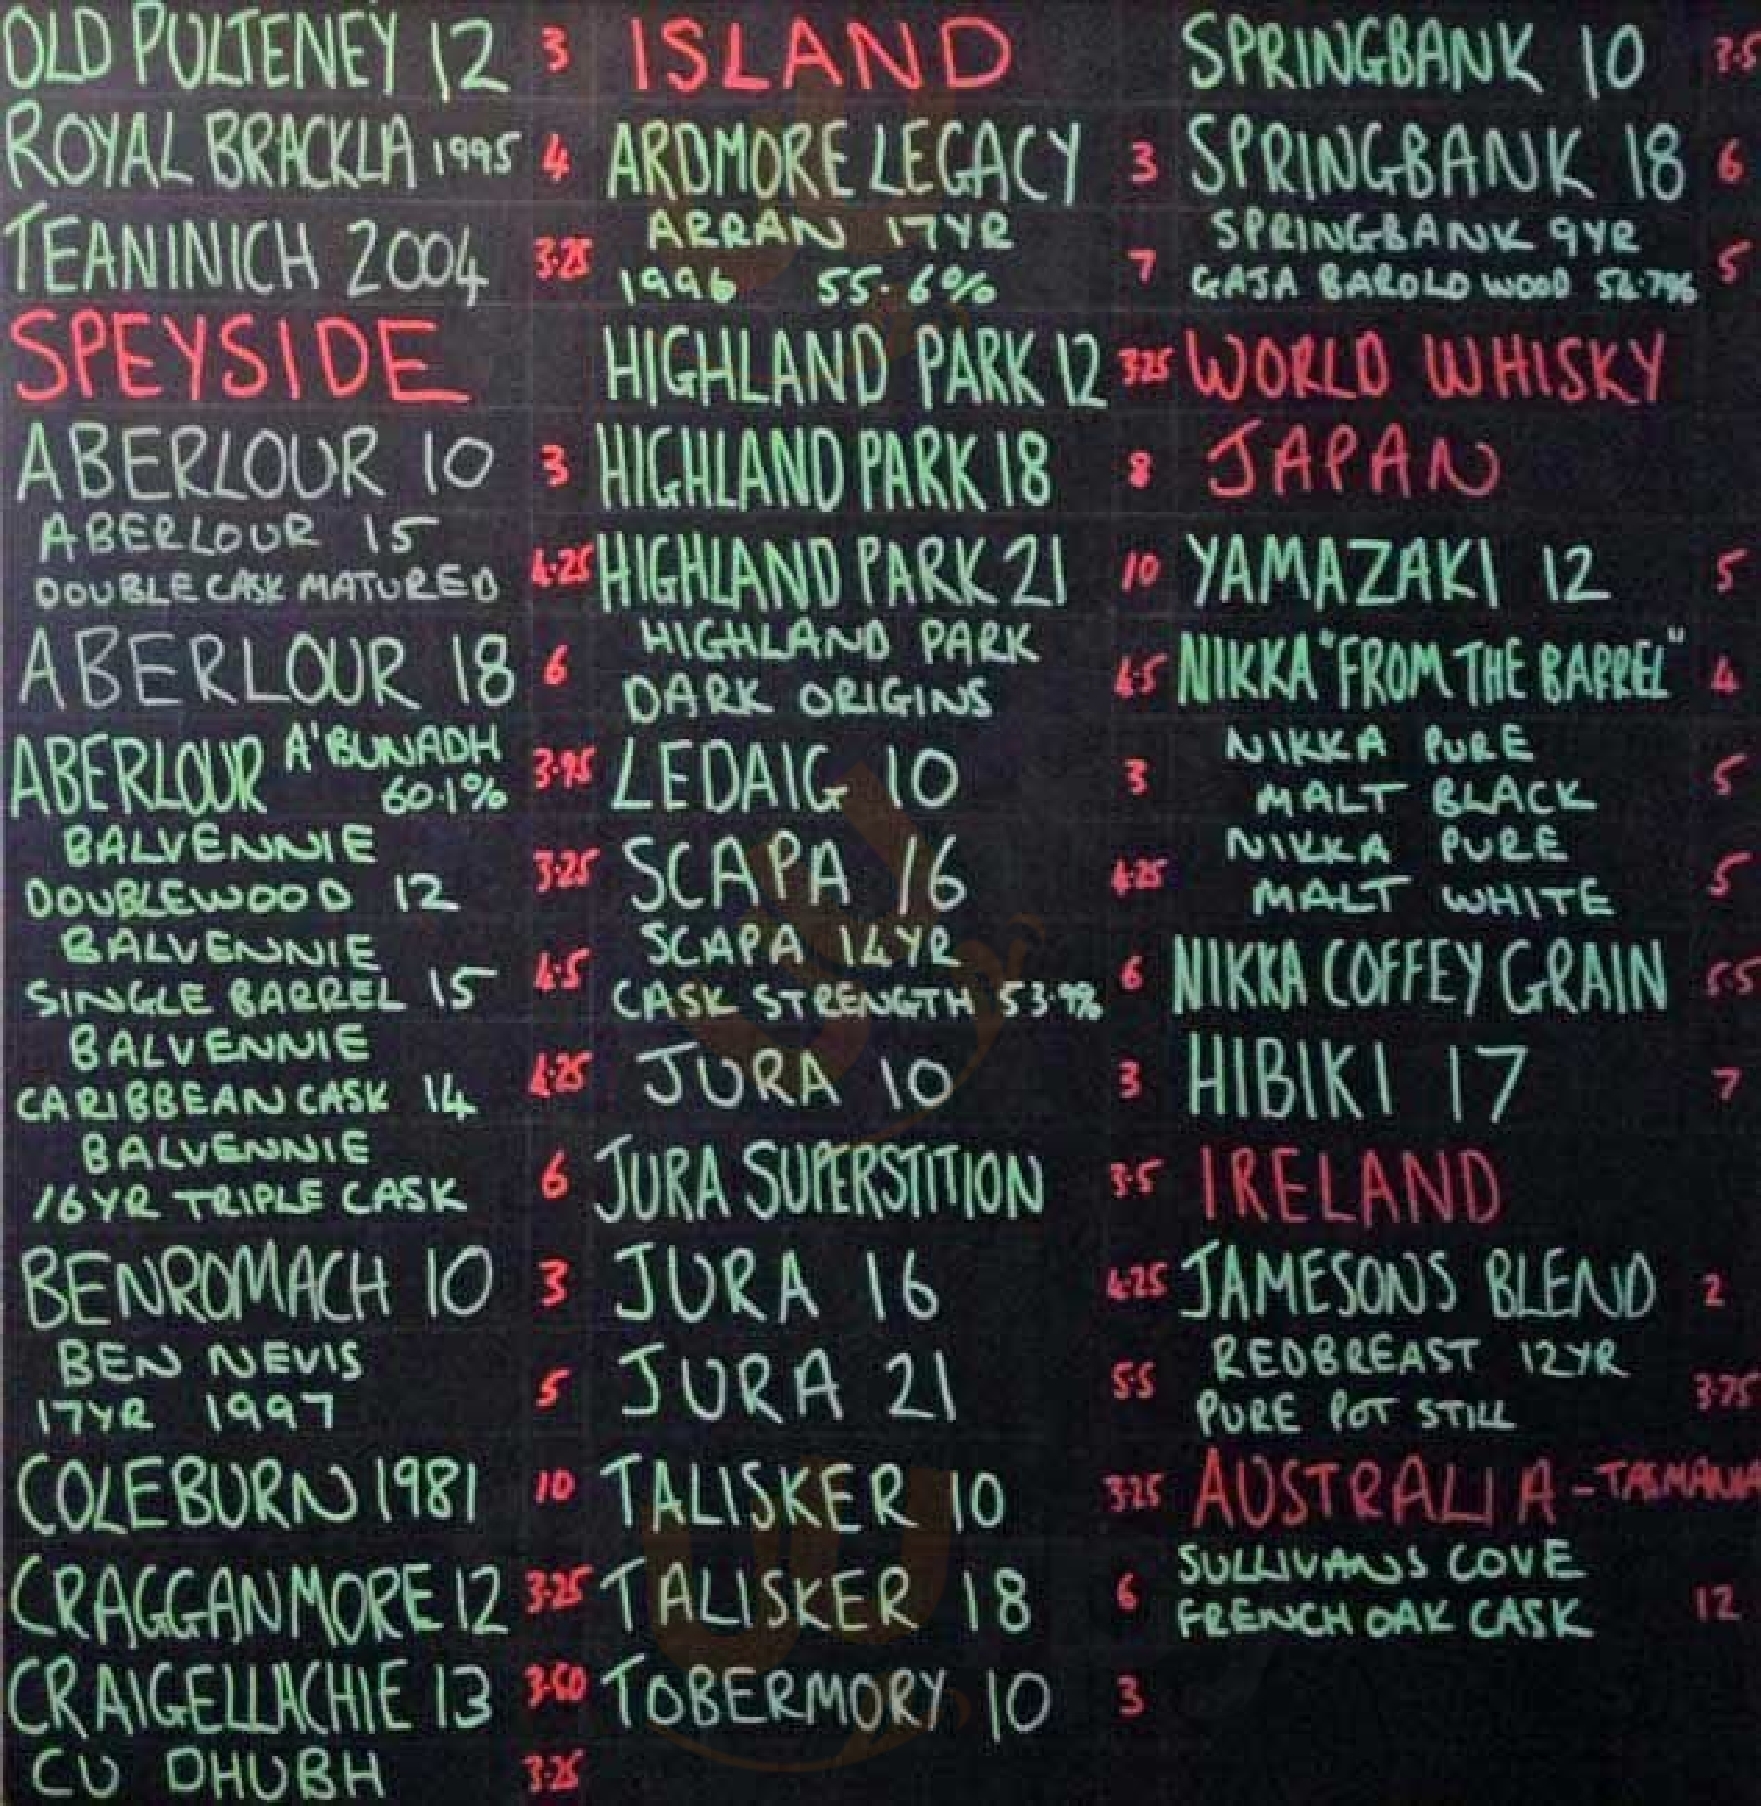 OLD PULTENEY 12 3
ROYAL BRACKLA 1995 4
TEANINICH 2004 3.25
SPEYSIDE
ABERLOUR 10 3
ABERLOUR 15
DOUBLE CASK MATURED 4.25
ABERLOUR 18 6
ABERLOUR A'BUNADH
60.1% 3.95
BALVENNIE
DOUBLEWOOD 12 3.25
BALVENNIE
SINGLE BARREL 15 4.5
BALVENNIE
CARIBBEAN CASK 14 4.25
BALVENNIE
16YR TRIPLE CASK 6
BENROMACH 10 3
BEN NEVIS
17YR 1997 5
COLEBURN 1981 10
CRAGGANMORE 12 3.25
CRAIGELLACHIE 13 3.50
CU DHUBH 3.25
ISLAND
ARDMORE LEGACY 3
ARRAN 17YR
1996 55.6% 7
HIGHLAND PARK 12 3.25
HIGHLAND PARK 18 8
HIGHLAND PARK 21 10
HIGHLAND PARK
DARK ORIGINS 4.5
LEDAIG 10 3
SCAPA 16 4.25
SCAPA 14YR
CASK STRENGTH 53.9% 6
JURA 10 3
JURA SUPERSTITION 3.5
JURA 16 4.25
JURA 21 5.5
TALISKER 10 3.25
TALISKER 18 6
TOBERMORY 10 3
SPRINGBANK 10 3.5
SPRINGBANK 18 6
SPRINGBANK 9YR
GAJA BAROLO WOOD 54.7% 5
WORLD WHISKY
JAPAN
YAMAZAKI 12 5
NIKKA "FROM THE BARREL" 4
NIKKA PURE
MALT BLACK 5
NIKKA PURE
MALT WHITE 5
NIKKA COFFEY GRAIN 5.5
HIBIKI 17 7
IRELAND
JAMESONS BLEND 2
REDBREAST 12YR
PURE POT STILL 3.75
AUSTRALIA - TASMANIA
SULLIVANS COVE
FRENCH OAK CASK 12